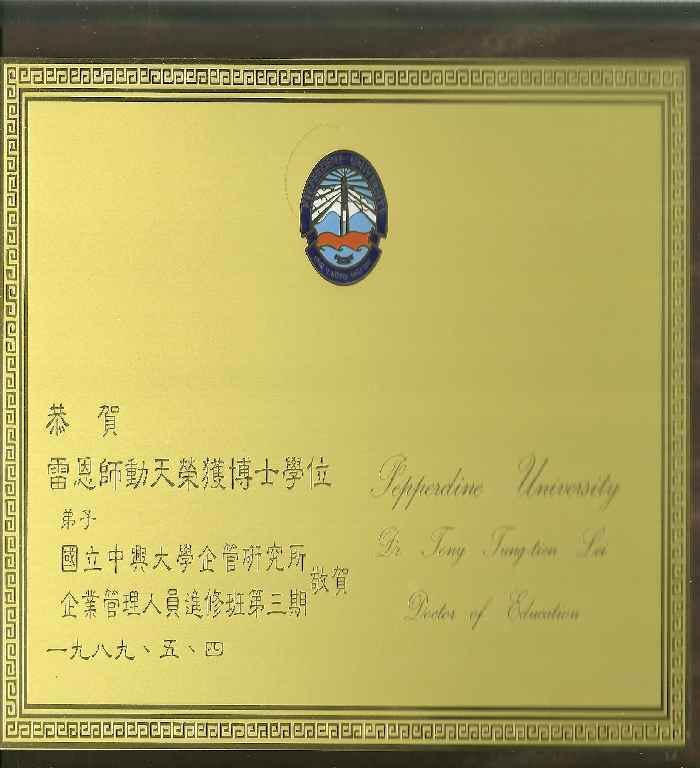 PEPPERDINE UNIVERSITY
恭賀
雷恩師動天榮獲博士學位
弟子
國立中興大學企管研究所
企業管理人員進修班第三期
敬賀
一九八九、五、四
Pepperdine University
Dr Tony Tung-tien Lei
Doctor of Education